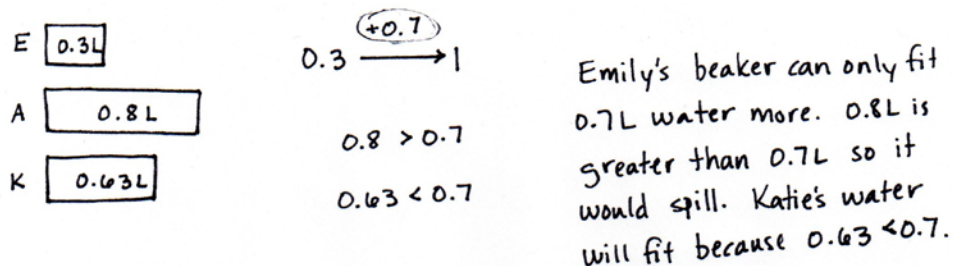 E 0.3L
A 0.8L
K 0.63L
+0.7
0.3 → 1
0.8 > 0.7
0.63 < 0.7
Emily's beaker can only fit
0.7L water more. 0.8L is
greater than 0.7L so it
would spill. Katie's water
will fit because 0.63 < 0.7.